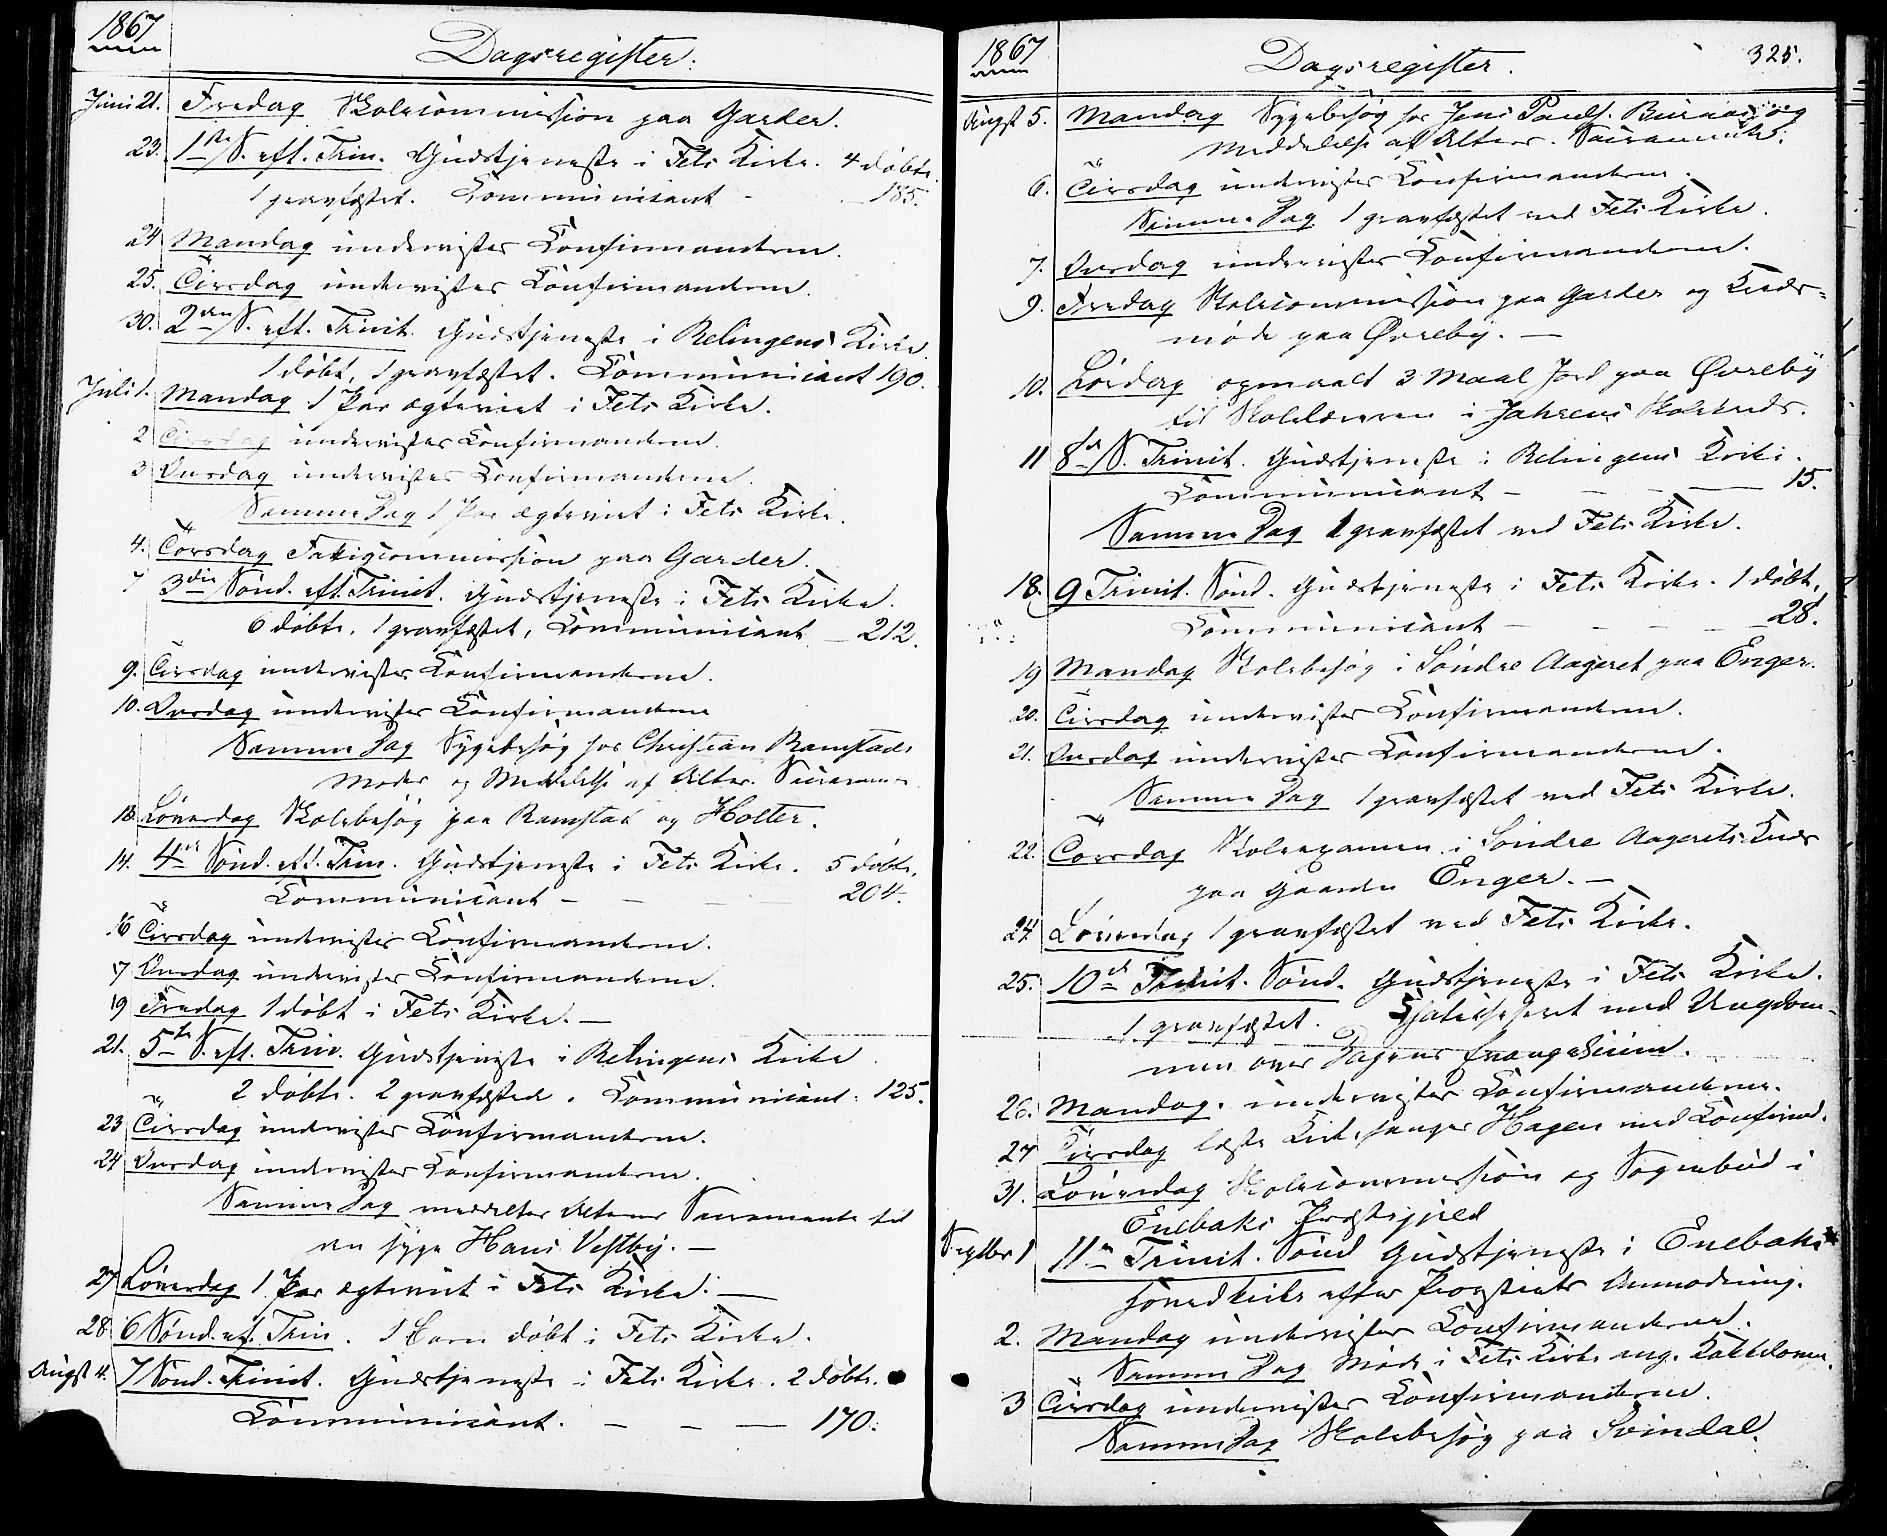 1867
Dagsregister.
Juni 21. Fredag Skolecommission paa Garder.
23. 1ste S. eft. Trin. Gudstjeneste i Fets Kirke. 4 døbte.
1 gravfæstet. Communicant - 185.
24 Mandag undervistes Confirmanderne.
25. Tirsdag undervistes Confirmanderne.
30. 2den S. eft. Trinit. Gudstjeneste i Relingens Kirke.
1 døbt, 1 gravfæstet. Communicant 190.
Juli 1. Mandag 1 Par ægteviet i Fets Kirke.
2 Tirsdag undervistes Confirmanderne.
3 Onsdag undervistes Confirmanderne.
Samme Dag 1 Par ægteviet i Fets Kirke.
4. Torsdag Fatigcommission paa Garder.
7 3die Sönd. eft. Trinit. Gudstjeneste i Fets Kirke.
6 døbte, 1 gravfæstet, Communicant - 212.
9. Tirsdag undervistes Confirmanderne.
10. Onsdag undervistes Confirmanderne
Samme Dag Sygebesøg hos Christian Ramstads
Moder og Meddelelse af Alter. Sacramen
13. Löverdag Skolebesøg paa Ramstad og Holter.
14. 4de Sönd. eft. Trin. Gudstjeneste i Fets Kirke. 5 døbte.
Communicant - - - 204.
16 Tirsdag undervistes Confirmanderne.
17 Onsdag undervistes Confirmanderne.
19 Fredag 1 døbt i Fets Kirke. —
21. 5te S. eft. Trin. Gudstjeneste i Relingens Kirke
2 døbte. 2 gravfæstede. Communicant: 125.
23 Tirsdag undervistes Confirmanderne.
24 Onsdag undervistes Confirmanderne.
Samme Dag meddeltes Alterens Sacramente til
den syge Hans Vestby. —
27 Löverdag 1 Par ægteviet i Fets Kirke. —
28 6 Sönd. ef. Trin. 1 Barn døbt i Fets Kirke.
Augst 4. 7 Sönd. Trinit. Gudstjeneste i Fets Kirke. 2 døbte.
Communicant. - - - 170.
1867
Dagsregister.
325.
Augst 5. Mandag Sygebesøg hos Jens Pauls. Buraas og
Meddelelse af Alter. Sacramentet.
6. Tirsdag undervistes Confirmanderne.
Samme Dag 1 gravfæstet ved Fets Kirke.
7. Onsdag undervistes Confirmanderne.
9. Fredag Skolecommission paa Garder og Kreds=
møde paa Øvreby. —
10. Lördag opmaalt 3 Maal Jord paa Øvreby
til Skolelæreren i Jahrens Skolekreds.
11 8de S. Trinit. Gudstjeneste i Relingens Kirke.
Communicant - - - 15.
Samme Dag 1 gravfæstet ved Fets Kirke.
18. 9 Trinit. Sönd. Gudstjeneste i Fets Kirke. 1 døbt,
Communicant - - - 28.
19 Mandag Skolebesøg i Söndre Aageret paa Enger.
20. Tirsdag undervistes Confirmanderne.
21. Onsdag undervistes Confirmanderne.
Samme Dag 1 gravfæstet ved Fets Kirke.
22. Torsdag Skoleexamen i Söndre Aagerets Kreds
paa Gaarden Enger. —
24. Löverdag 1 gravfæstet ved Fets Kirke.
25. 10de Trinit. Sönd. Gudstjeneste i Fets Kirke.
1 gravfæstet. Chatechiseret med Ungdom=
men over Dagens Evangelium.
26. Mandag. undervistes Confirmanderne.
27 Tirsdag læste Kirkesanger Hagen med Confirmd.
31. Löverdag Skolecommission og Sognebud i
Enebaks Præstegjeld
Septbr 1 11te Trinit. Sönd Gudstjeneste i Enebaks
Hovedkirke efter Provstiets Anmodning.
2. Mandag undervistes Confirmanderne.
Samme Dag Møde i Fets Kirke ang. Kakkelovne.
3 Tirsdag undervistes Confirmanderne.
Samme Dag Skolebesøg paa Svindal.